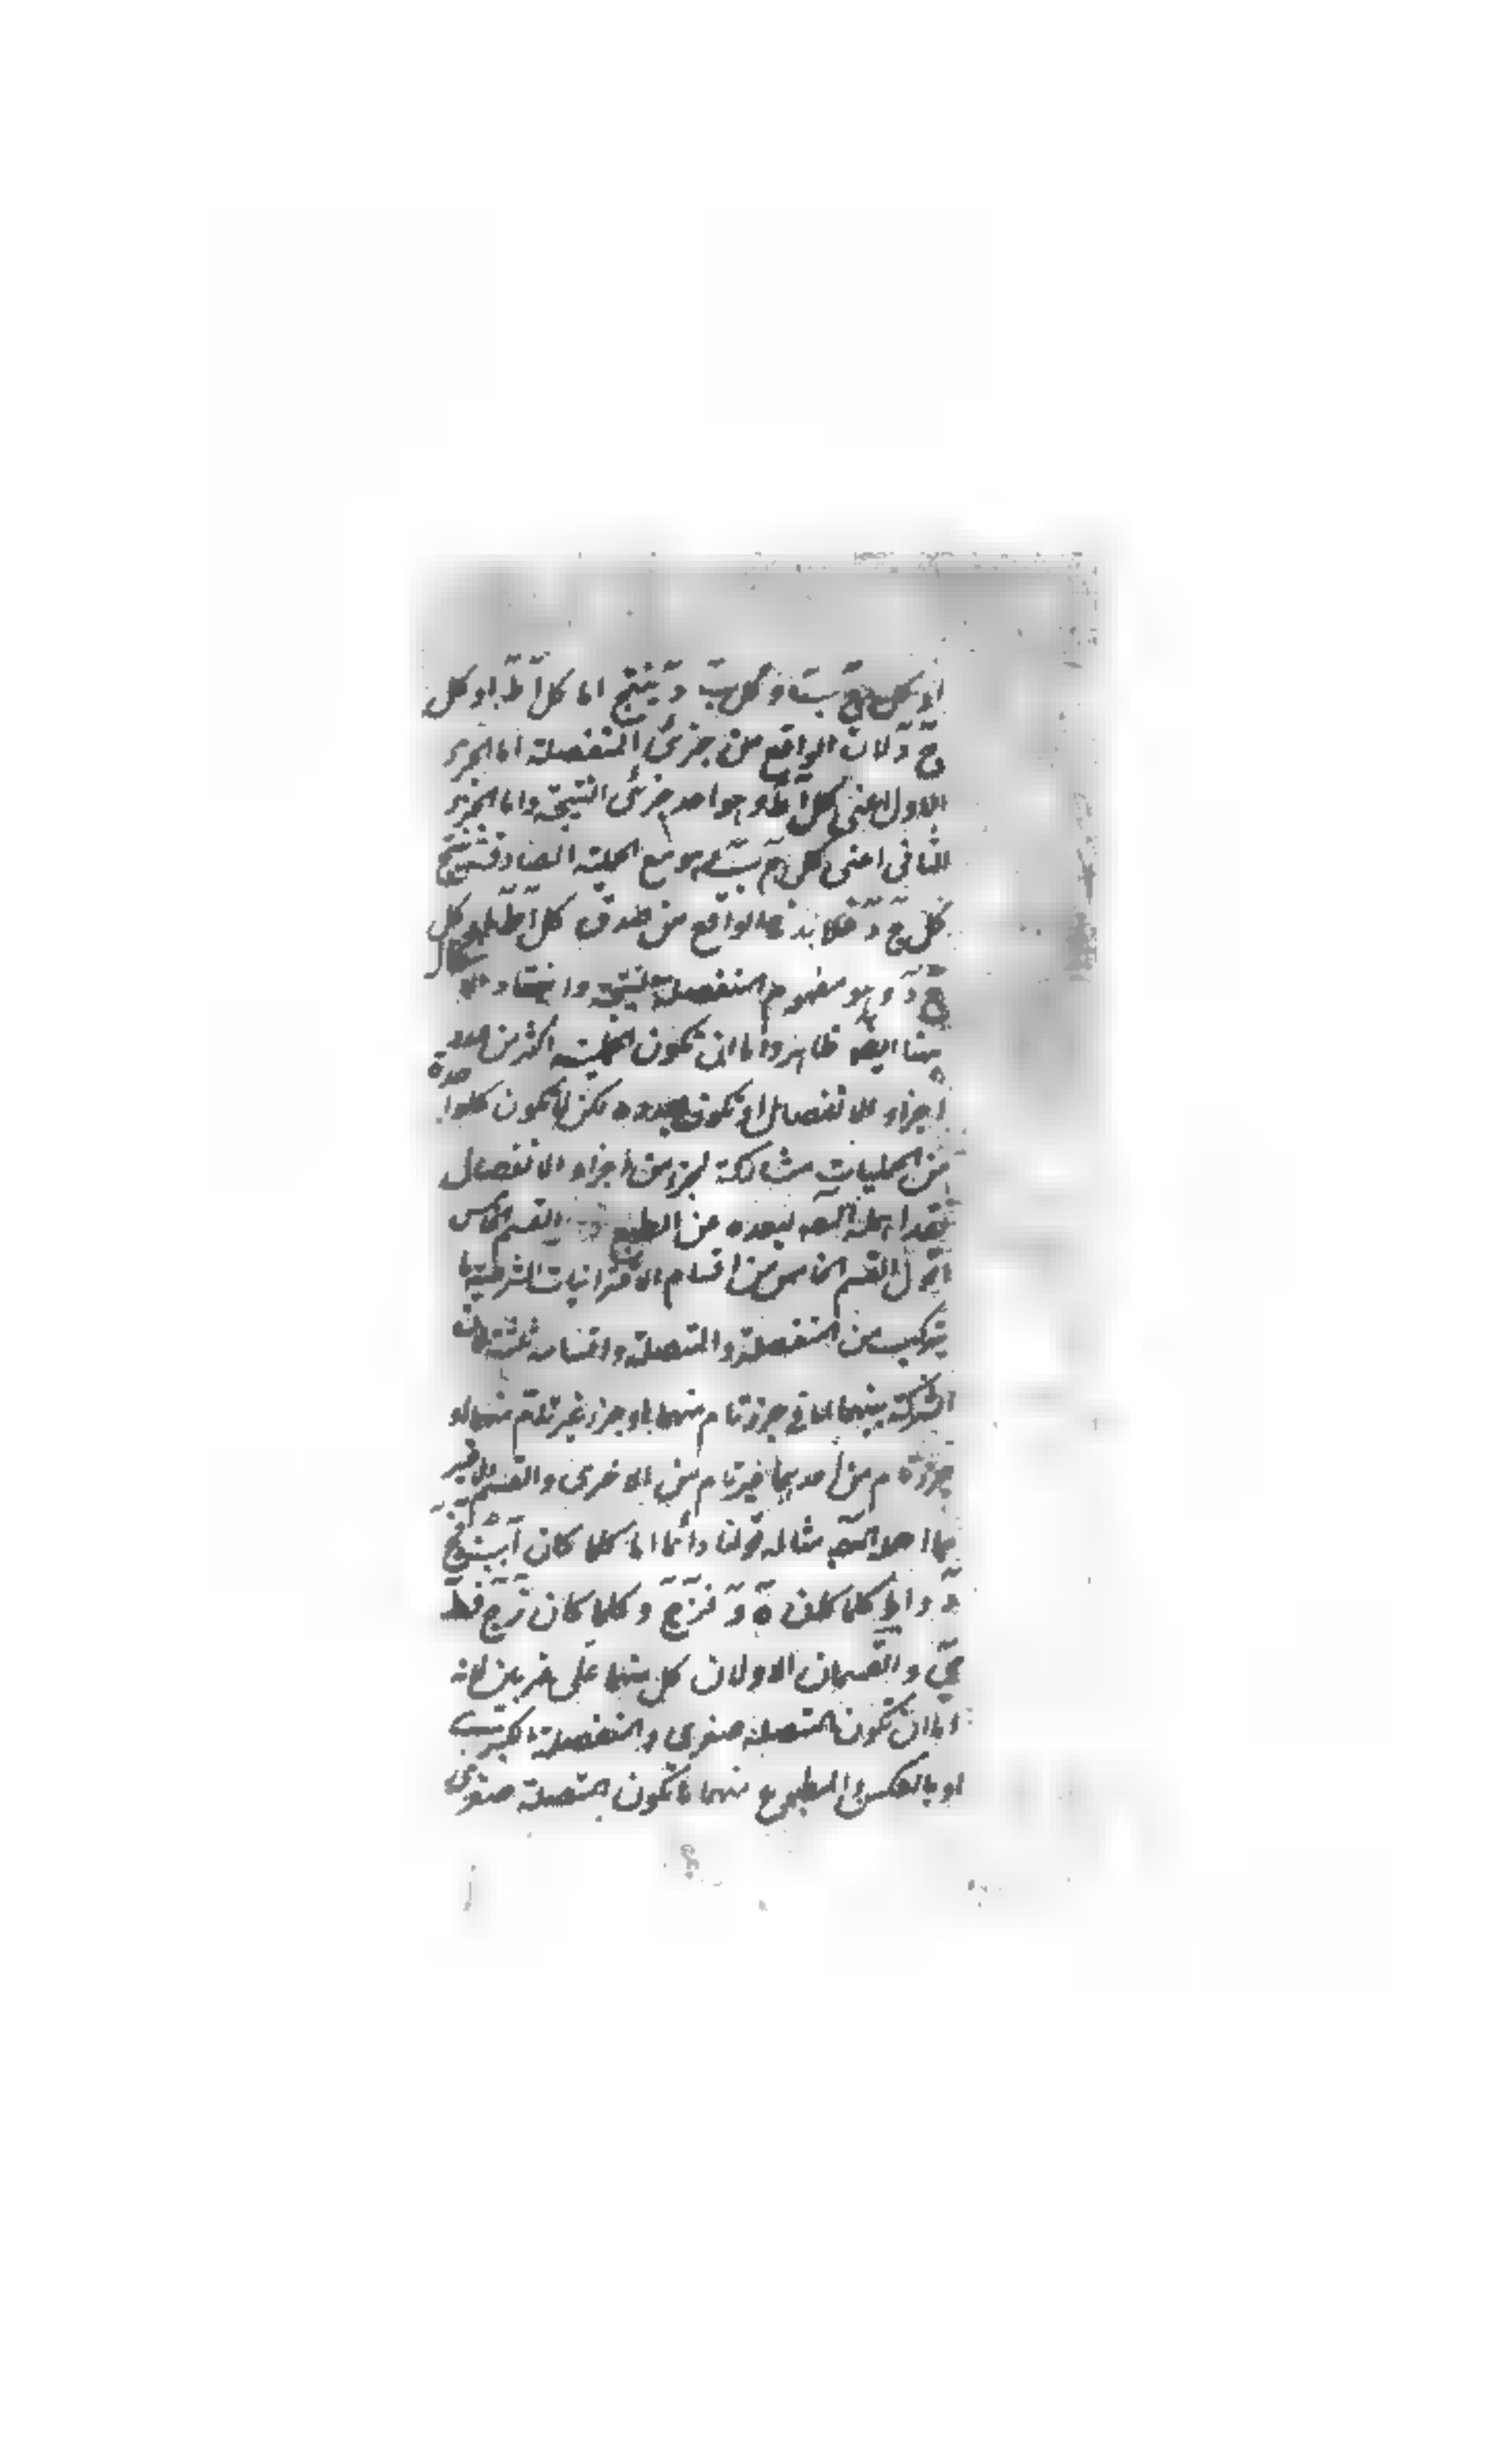 او كل ج ب وكل ب د ينتج اما كل ا ط او كل
ج د لان الواقع من جزئى المنفصلة اما الجزء
الاول اعنى كل ا ط وهو احد جزئى النتيجة واما الجزء
الثانى اعنى كل ج ب وهو مع الحملية الصادقة ينتج
كل ج د فلا بد فى الواقع من صدق كل ا ط او كل
ج د وهو مفهوم المنفصلة النتيجة
هنا ايضا ظاهر واما ان تكون الحملية اكثر من عدد
اجزاء الانفصال او تكون بعدده لكن لا تكون كل واحدة
من الحمليات مشاركة لجزء من اجزاء الانفصال
لبعده عن الطبع القسم الخامس
اقول القسم الخامس من اقسام الاقترانيات الشرطية ما
يتركب من المنفصلة والمتصلة واقسامه ثلثة لان
الشركة بينهما اما فى جزء تام منهما او جزء غير تام منهما او
جزء تام من احديهما غير تام من الاخرى والقسم الاخير
مثاله قولنا دائما اما كلما كان ا ب
واما كلما كان ه و ف ز ج وكلما كان ز ج
والقسمان الاولان كل منهما على ضربين لانه
اما ان تكون المتصلة صغرى والمنفصلة كبرى
او بالعكس والمطبوع منهما ما تكون المتصلة صغرى